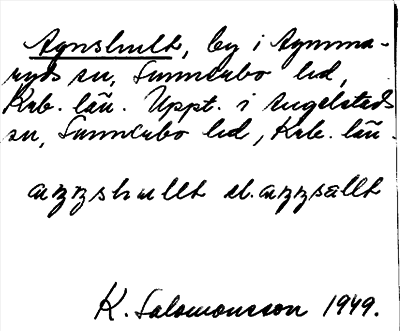 Agnshult, by i Agunna-
ryds sn, Sunnerbo hd,
Krb. län. Uppt. i Angelstads
sn, Sunnerbo hd, Krb. län.
aŋŋshullt el. aŋŋsallt
K. Salomonsson 1949.